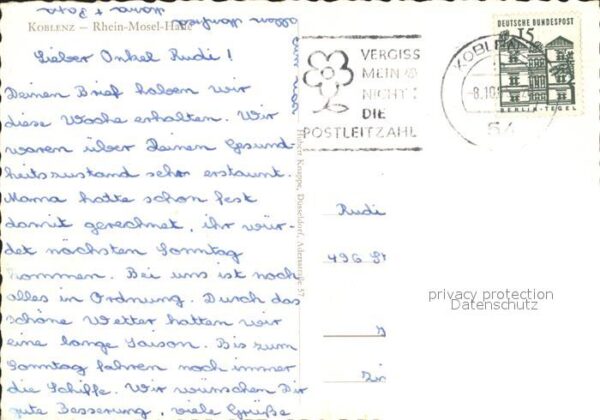 KOBLENZ — Rhein-Mosel-Halle
Lieber Onkel Rudi!
Deinen Brief haben wir
diese Woche erhalten. Wir
waren über Deinen Gesund-
heitszustand sehr erstaunt.
Mama hatte schon fest
damit gerechnet, ihr wür-
det nächsten Sonntag
kommen. Bei uns ist noch
alles in Ordnung. Durch das
schöne Wetter hatten wir
eine lange Saison. Bis zum
Sonntag fahren noch immer
die Schiffe. Wir wünschen Dir
gute Besserung, viele Grüße
Hubert Knappe, Düsseldorf, Adersstraße 57
VERGISS
MEIN
NICHT
DIE
POSTLEITZAHL
KOBLEN
-8.10.
54
DEUTSCHE BUNDESPOST
15
BERLIN-TEGEL
Rudi
496 St
privacy protection
Datenschutz